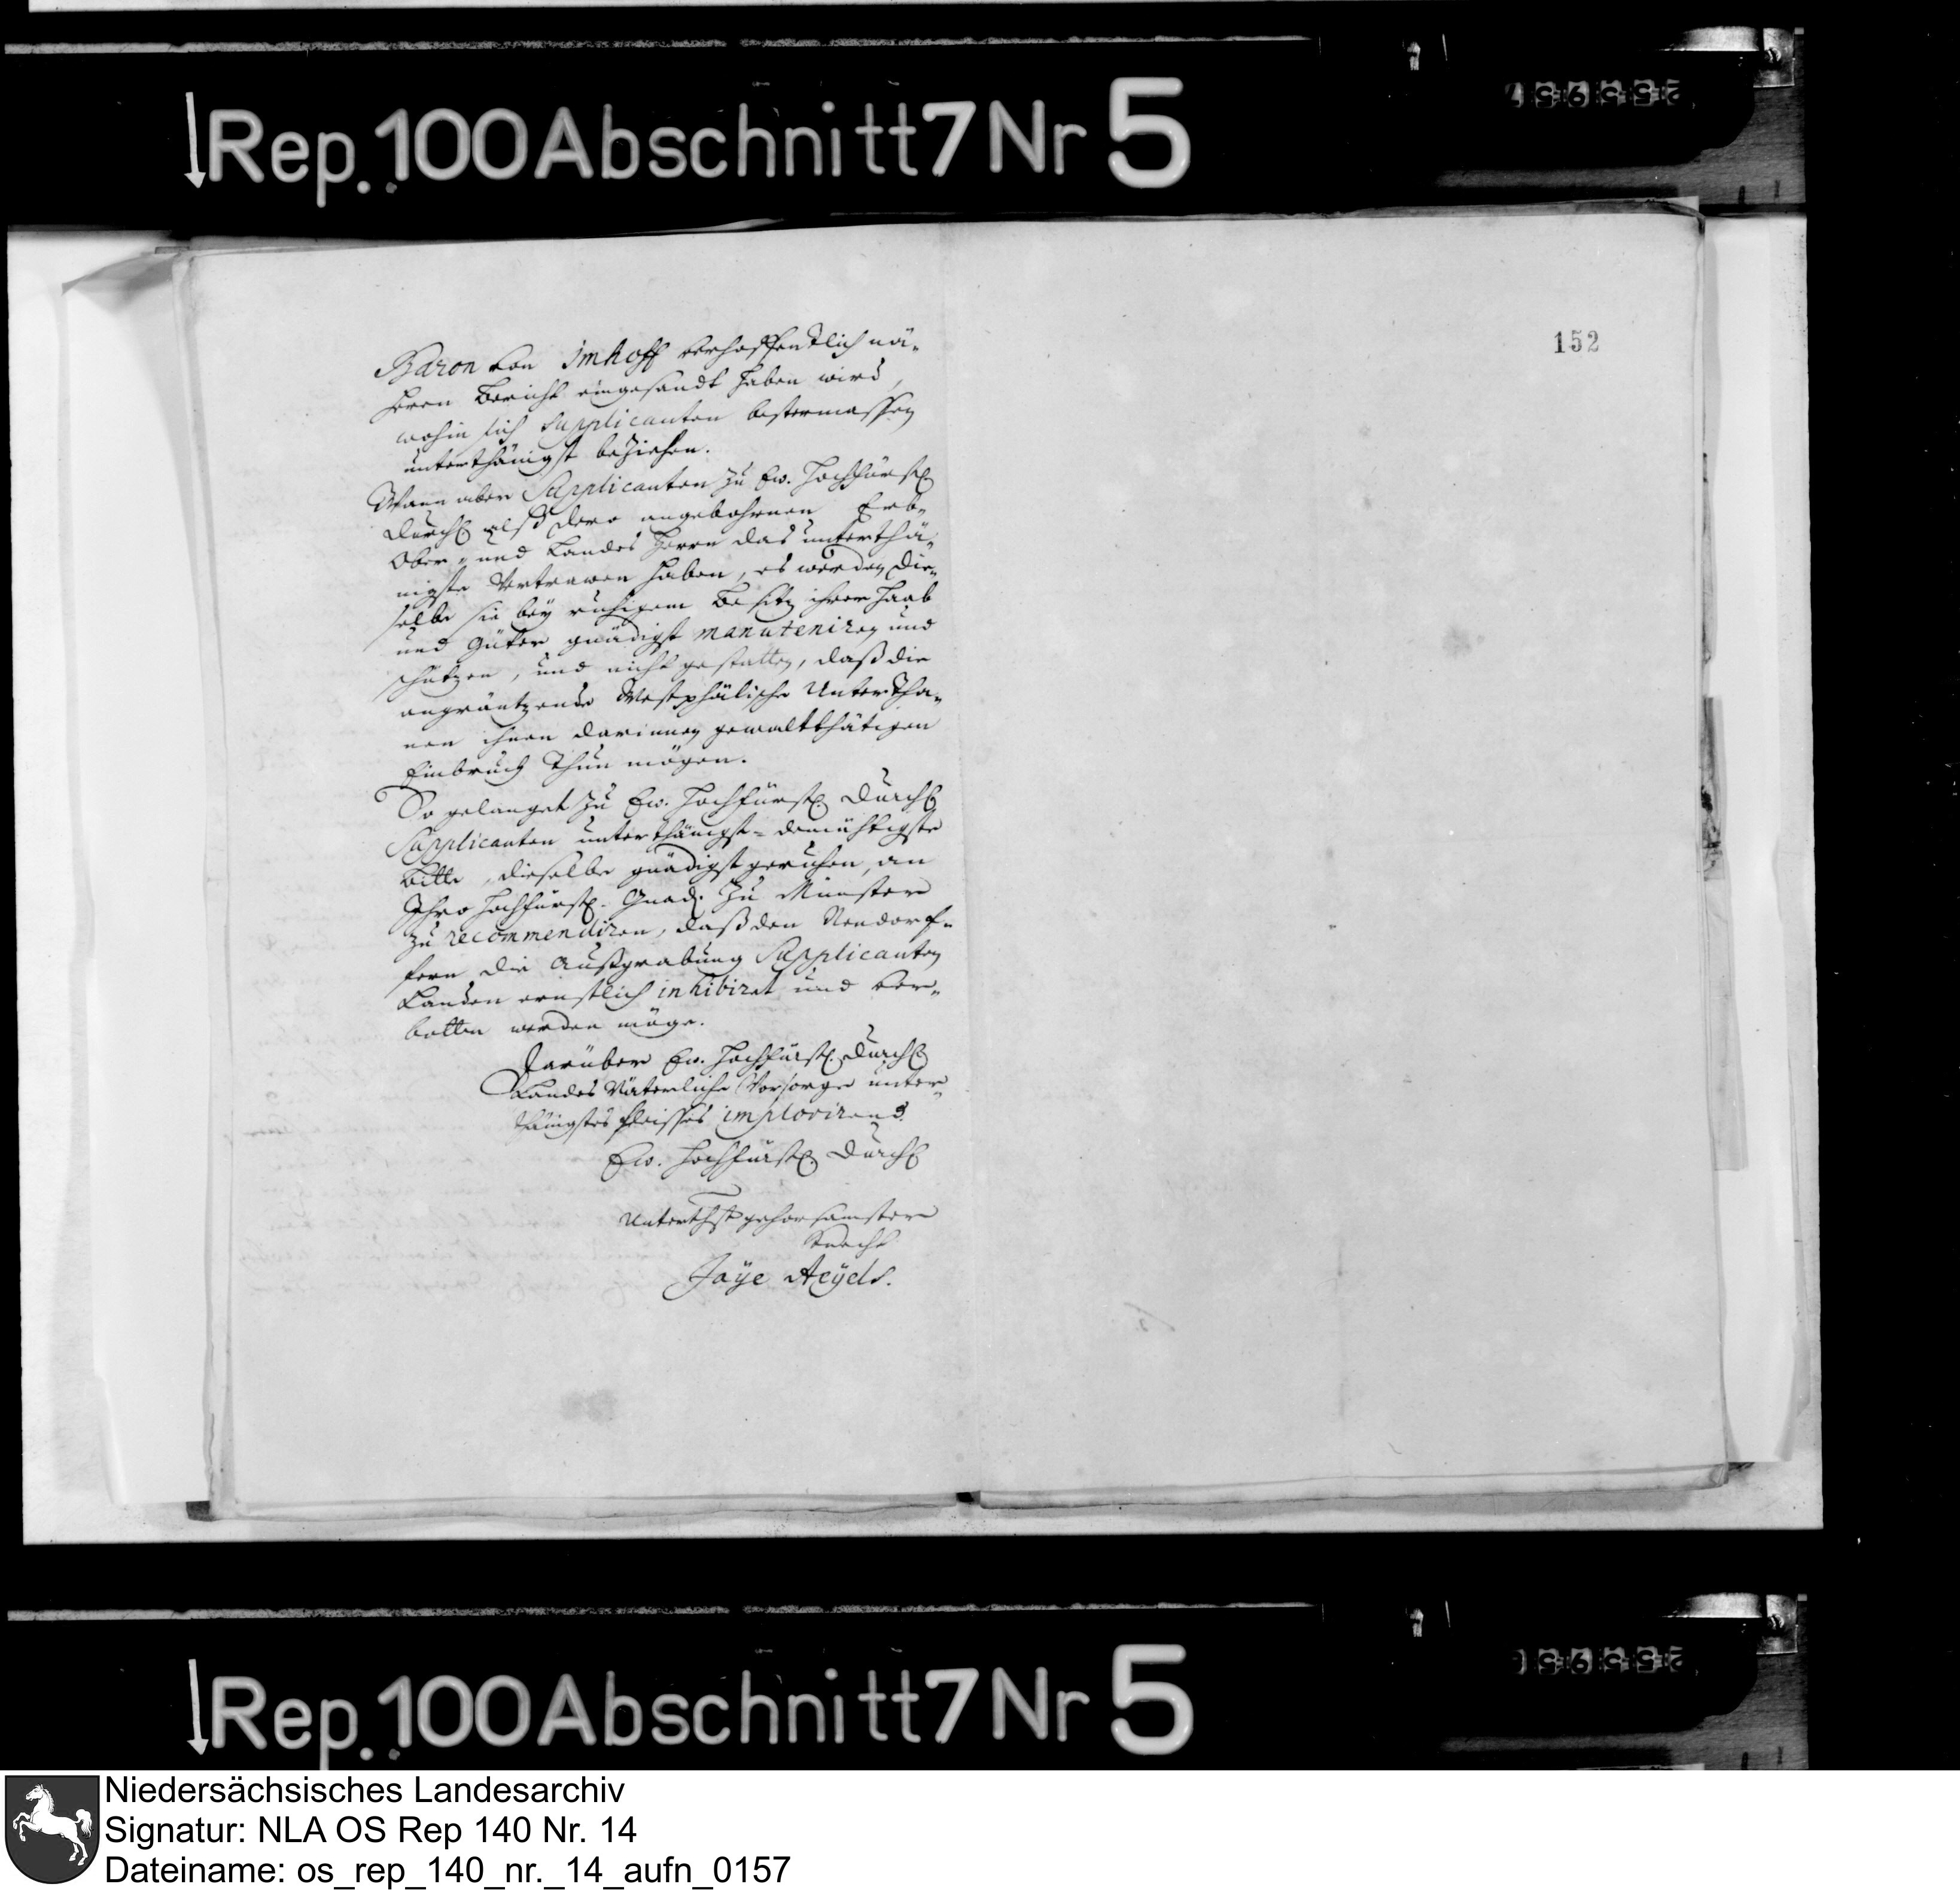 Rep. 100 Abschnitt 7 Nr 5
152
Baron von Imhoff verhoffentlich nä-
hern Bericht eingesandt haben wird,
wohin sich Supplicanten bestermassen
unterthänigst beziehen.
Wann aber Supplicanten zu Ew. Hochfürstl
Durchl alß dero angebohrnen Erb-
Ober- und Landes Herrn das unterthä-
nigste Vertrawen haben, es werden die-
selbe sie bey ruhigem Besitz ihrer Haab
und Güter gnädigst manuteniren und
schützen, und nicht gestatten, daß die
angräntzende Westphälische Untertha-
nen ihnen darinnen gewaltthätigen
Einbruch thun mögen.
So gelanget zu Ew. Hochfürstl. Durchl
Supplicanten unterthänigst- demühtigste
bitte, dieselbe gnädigst geruhen, an
Ihro Hochfürstl. Gnad. zu Münster
zu recommendiren, daß den Nendorf-
fern die Außgrabung Supplicanten
Landen ernstlich inhibiret und ver-
botten werden möge.
Darüber Ew. Hochfürstl. Durchl
Landes Väterliche Vorsorge unter-
thänigstes fleisses implorirend
Ew. Hochfürstl. Durchl
Unterthst gehorsamster
Knecht
Jaÿe Aeÿels.
Rep. 100 Abschnitt 7 Nr 5
Niedersächsisches Landesarchiv
Signatur: NLA OS Rep 140 Nr. 14
Dateiname: os_rep_140_nr._14_aufn_0157